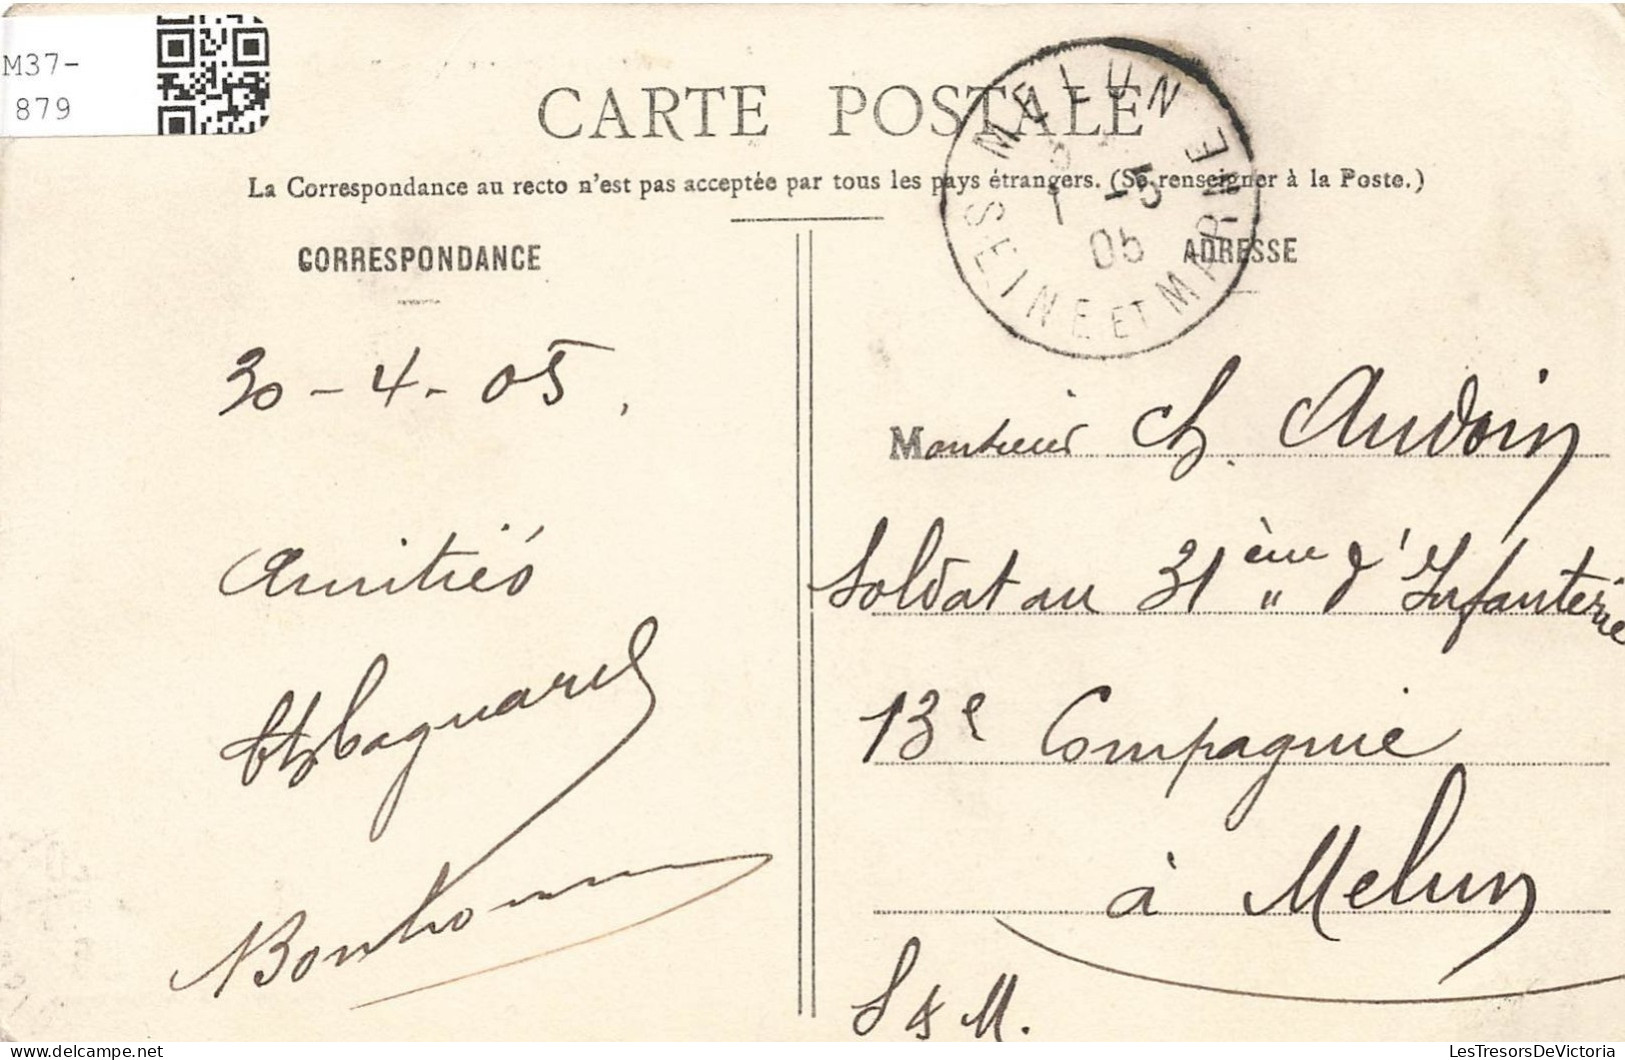 M37-
879
CARTE POSTALE
La Correspondance au recto n'est pas acceptée par tous les pays étrangers. (Se renseigner à la Poste.)
MELUN
1 -5
05
SEINE ET MARNE
CORRESPONDANCE
30-4-05,
Amitiés
Bonhomme
ADRESSE
Monsieur Ch. Audoin
Soldat au 31ème d'Infanterie
13e Compagnie
à Melun
S & M.
LesTresorsDeVictoria